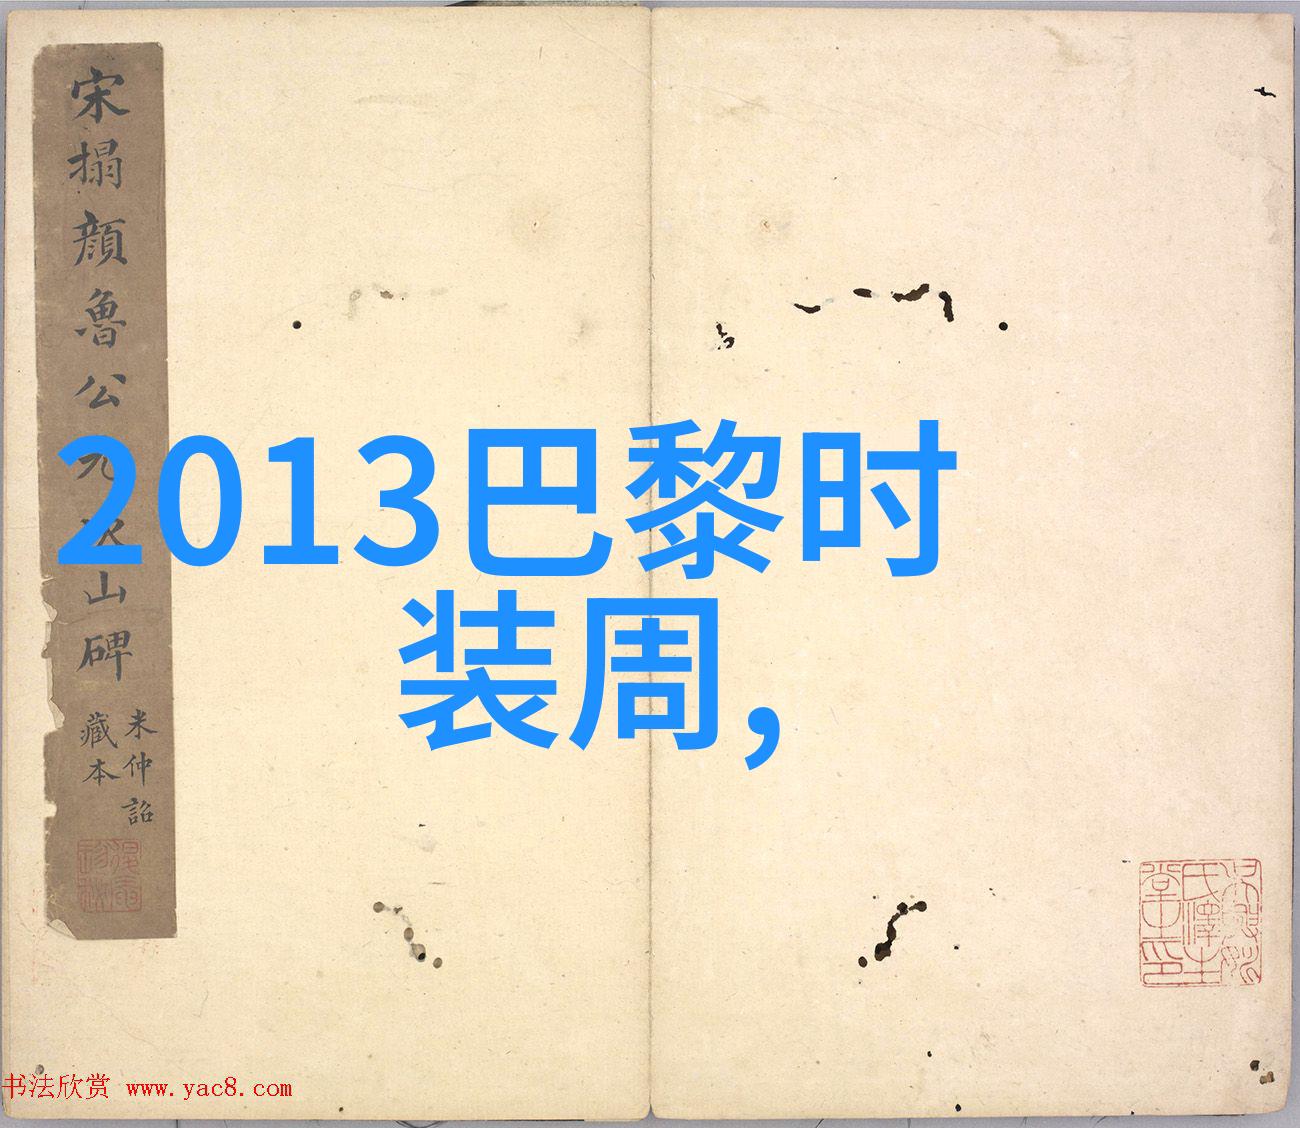 宋搨顔魯公
山碑
米仲詔
藏本
2013巴黎时
装周,
书法欣赏 www.yac8.com